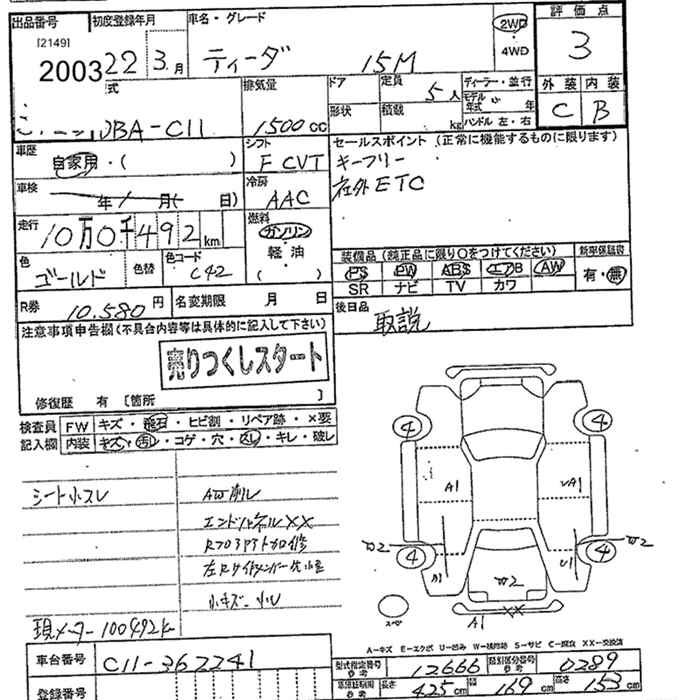 出品番号 初度登録年月 車名・グレード 評価点
[2149] 2WD
2003 22 3月 ティーダ 15M ・ 4WD 3
式 排気量 ドア 定員 ディーラー・並行 外装 内装
5人 モデル年式 年
DBA-C11 1500cc 形状 積載 kg ハンドル 左・右 C B
車歴 シフト セールスポイント (正常に機能するものに限ります)
自家用・( ) F CVT キーフリー
車検 冷房 社外ETC
年 / 月( 日) AAC
走行 燃料
10万0千492km ガソリン
軽油
色 色替 色コード ( ) 装備品 (純正品に限り○をつけてください) 新車保証書
ゴールド C42 PS PW ABS エアB AW 有・無
SR ナビ TV カワ
R券 10.580円 名変期限 月 日 後日品
取説
注意事項申告欄(不具合内容等は具体的に記入して下さい)
売りつくしスタート
修復歴 有 [箇所 ]
検査員 FW キズ・飛石・ヒビ割・リペア跡・×要
記入欄 内装 キズ・汚レ・コゲ・穴・スレ・キレ・破レ
シート小スレ AW削レ
エンドパネルXX
小キズ・小凹
現メーター100492k
4 4
A1 A1
W2 4 4 W2
W2
A1 XX
スペア
A-キズ E-エクボ U-凹み W-補修跡 S-サビ C-腐食 XX-交換済
車台番号 C11-362241 型式指定番号 12666 類別区分番号 0289
登録番号 長さ 425cm 幅 169cm 高さ 153cm